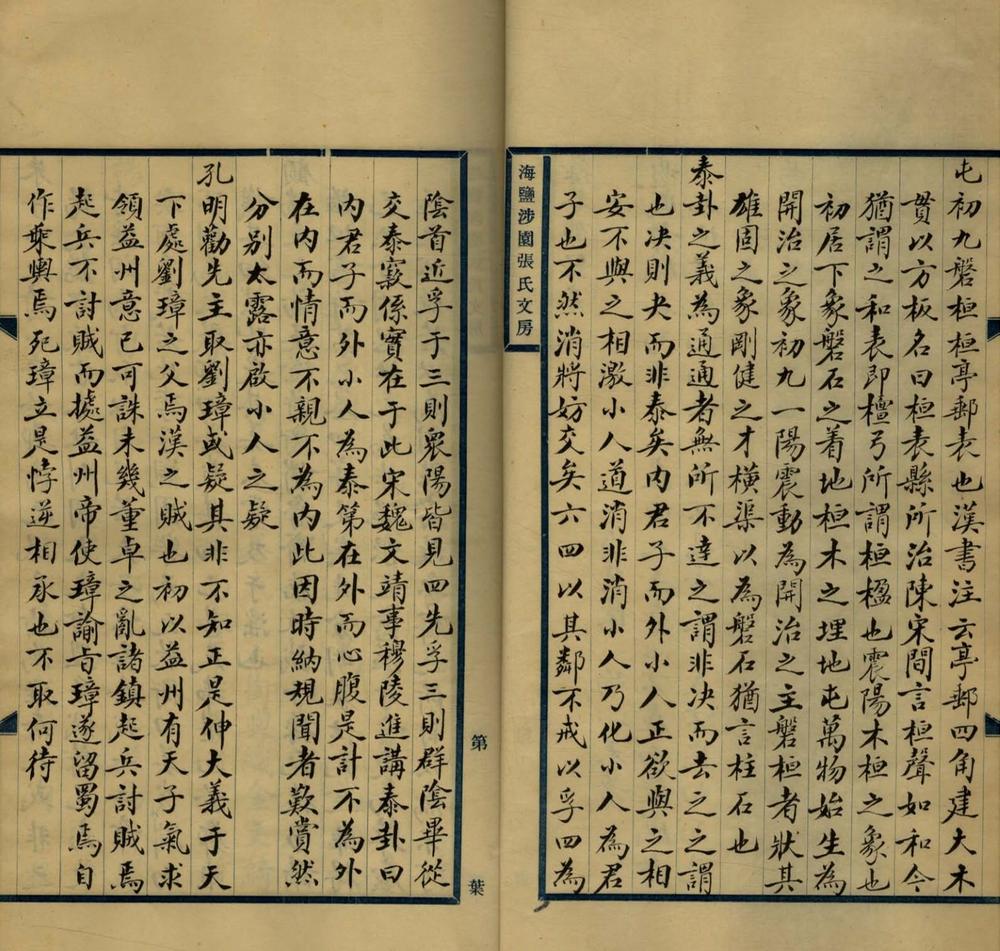 屯初九磐桓桓亭郵表也漢書注云亭郵四角建大木
貫以方板名曰桓表縣所治陳宋間言桓聲如和今
猶謂之和表即檀弓所謂桓楹也震陽木桓之象也
初居下象磐石之着地桓木之埋地屯萬物始生為
開治之象初九一陽震動為開治之主磐桓者狀其
雄固之象剛健之才橫渠以為磐石猶言柱石也
泰卦之義為通通者無所不達之謂非决而去之之謂
也决則夬而非泰矣内君子而外小人正欲與之相
安不與之相激小人道消非消小人乃化小人為君
子也不然消將妨交矣六四以其鄰不戒以孚四為
海鹽涉園張氏文房
陰首近孚于三則衆陽皆見四先孚三則群陰畢從
交泰寔係實在于此宋魏文靖事穆陵進講泰卦曰
内君子而外小人為泰第在外而心腹是計不為外
在内而情意不親不為内此因時納規聞者歎賞然
分别太露亦啟小人之疑
孔明勸先主取劉璋或疑其非不知正是伸大義于天
下處劉璋之父焉漢之賊也初以益州有天子氣求
領益州意已可誅未幾董卓之亂諸鎮起兵討賊焉
起兵不討賊而據益州帝使璋諭旨璋遂留蜀焉自
作乘輿焉死璋立是悖逆相承也不取何待
第
葉